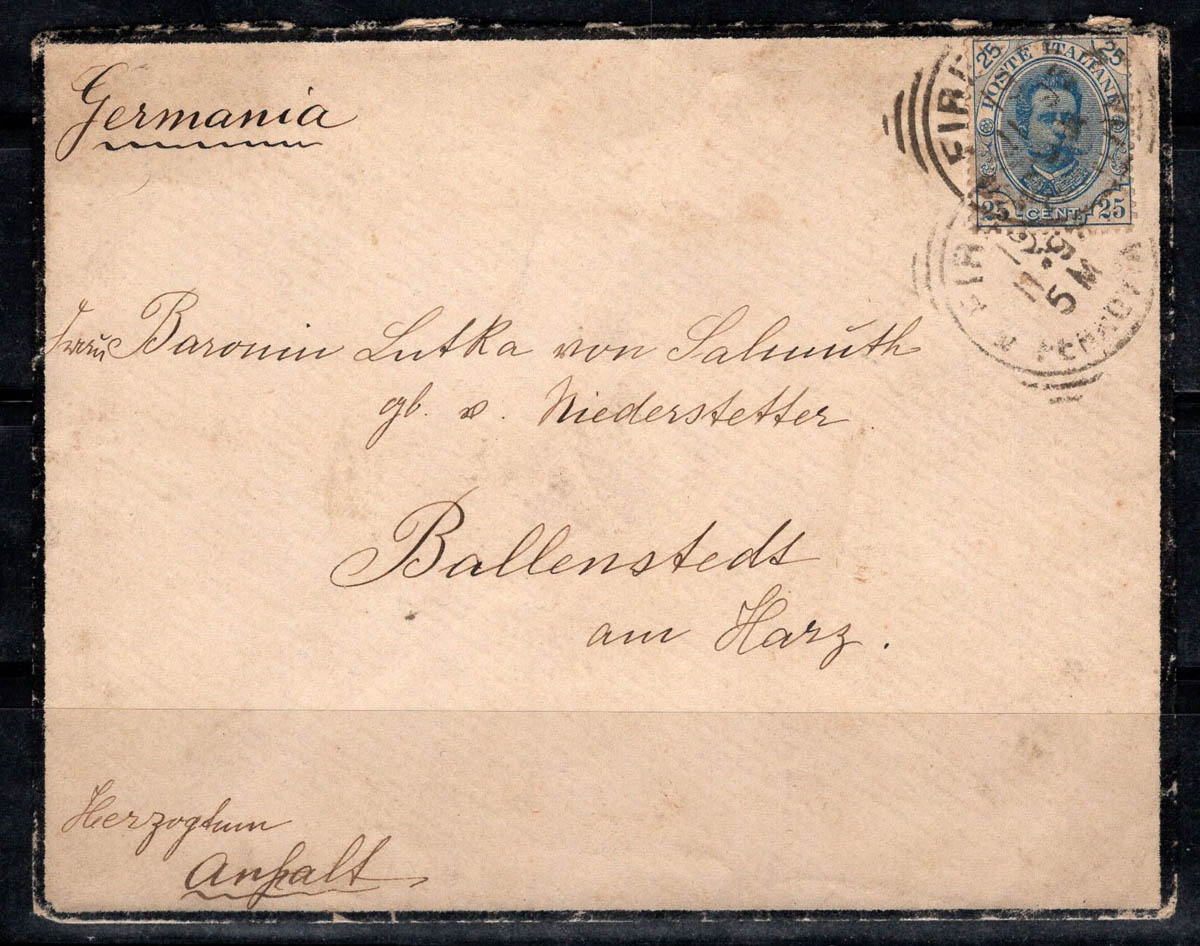 Germania
25 POSTE ITALIANE 25
25 CENT. 25
FIRENZE
FERROVIA
5 M
Frau Baronin Lutka von Salmuth
gb. v. Niederstetter.
Ballenstedt
am Harz.
Herzogtum
Anhalt